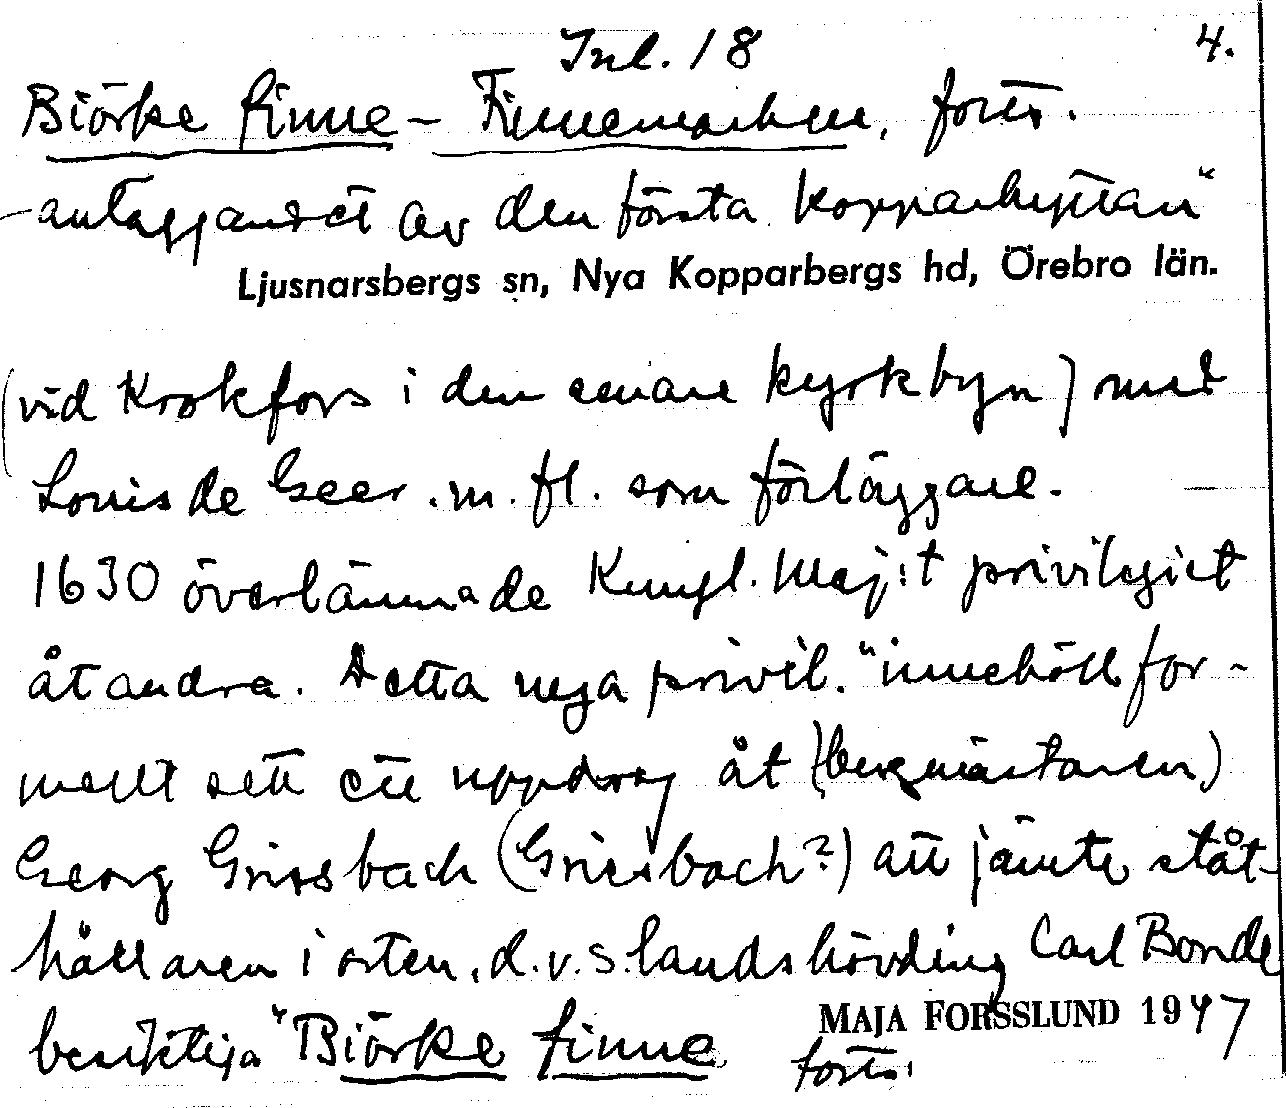 Inl. 18 4.
Biörke finne - Finnemarken, forts.
anläggandet av den första kopparhyttan"
Ljusnarsbergs sn, Nya Kopparbergs hd, Örebro län.
(vid Krokfors i den senare kyrkbyn) med
Louis de Geer m. fl. som förläggare.
1630 överlämnade Kungl. Maj:t privilegiet
åt andra. Detta nya privil. "innehöll for-
mellt sett ett uppdrag åt (bergmästaren)
Georg Grissbach (Griesbach?) att jämte ståt-
hållaren i orten, d.v.s. landshövding Carl Bonde
besiktiga "Biörke finne
MAJA FORSSLUND 1947
forts.